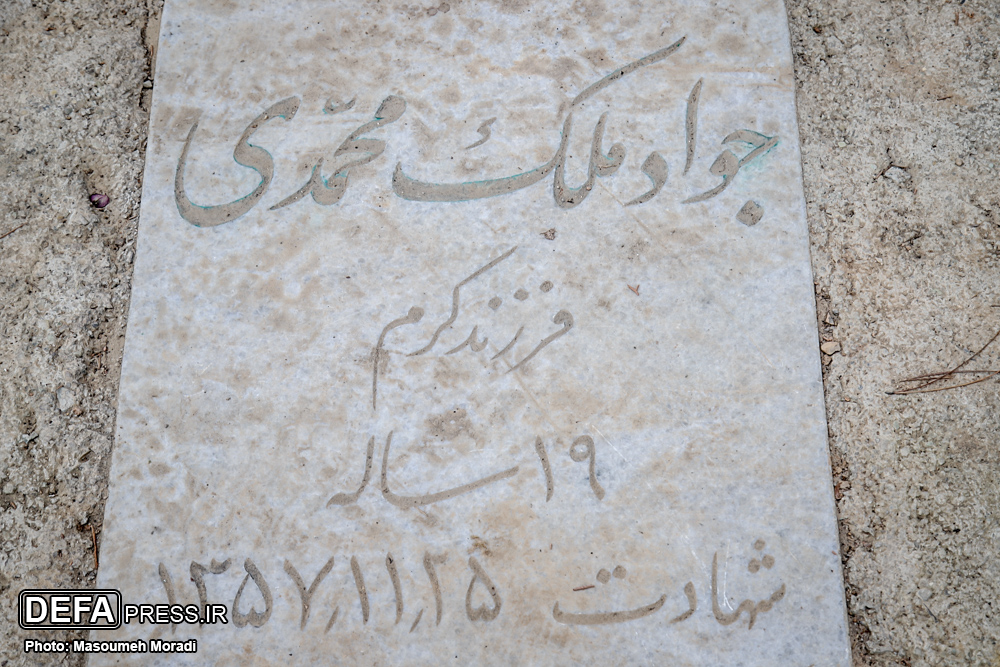 جواد ملک محمّدی
فرزند کرم
۱۹ ساله
شهادت ۱۳۵۷٫۱۱٫۲۵
DEFAPRESS.IR
Photo: Masoumeh Moradi